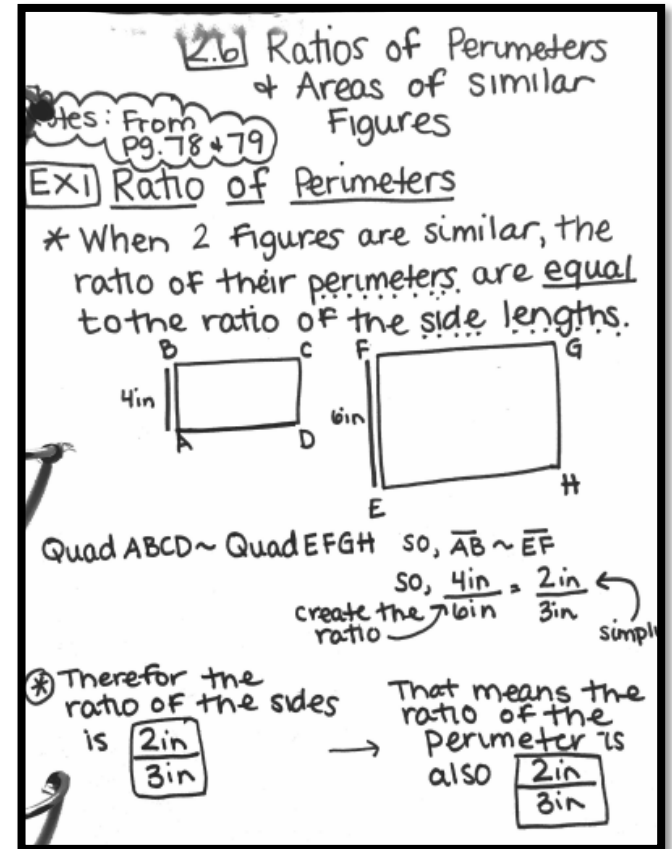 2.6 Ratios of Perimeters
& Areas of similar
Figures
From
pg. 78 & 79
EX1 Ratio of Perimeters
* When 2 figures are similar, the
ratio of their perimeters are equal
to the ratio of the side lengths.
B C F G
4in 6in
A D
E H
Quad ABCD ~ Quad EFGH so, AB ~ EF
so, 4in/6in = 2in/3in
create the
ratio
* Therefor the
ratio of the sides
is 2in/3in
→ That means the
ratio of the
perimeter is
also 2in/3in